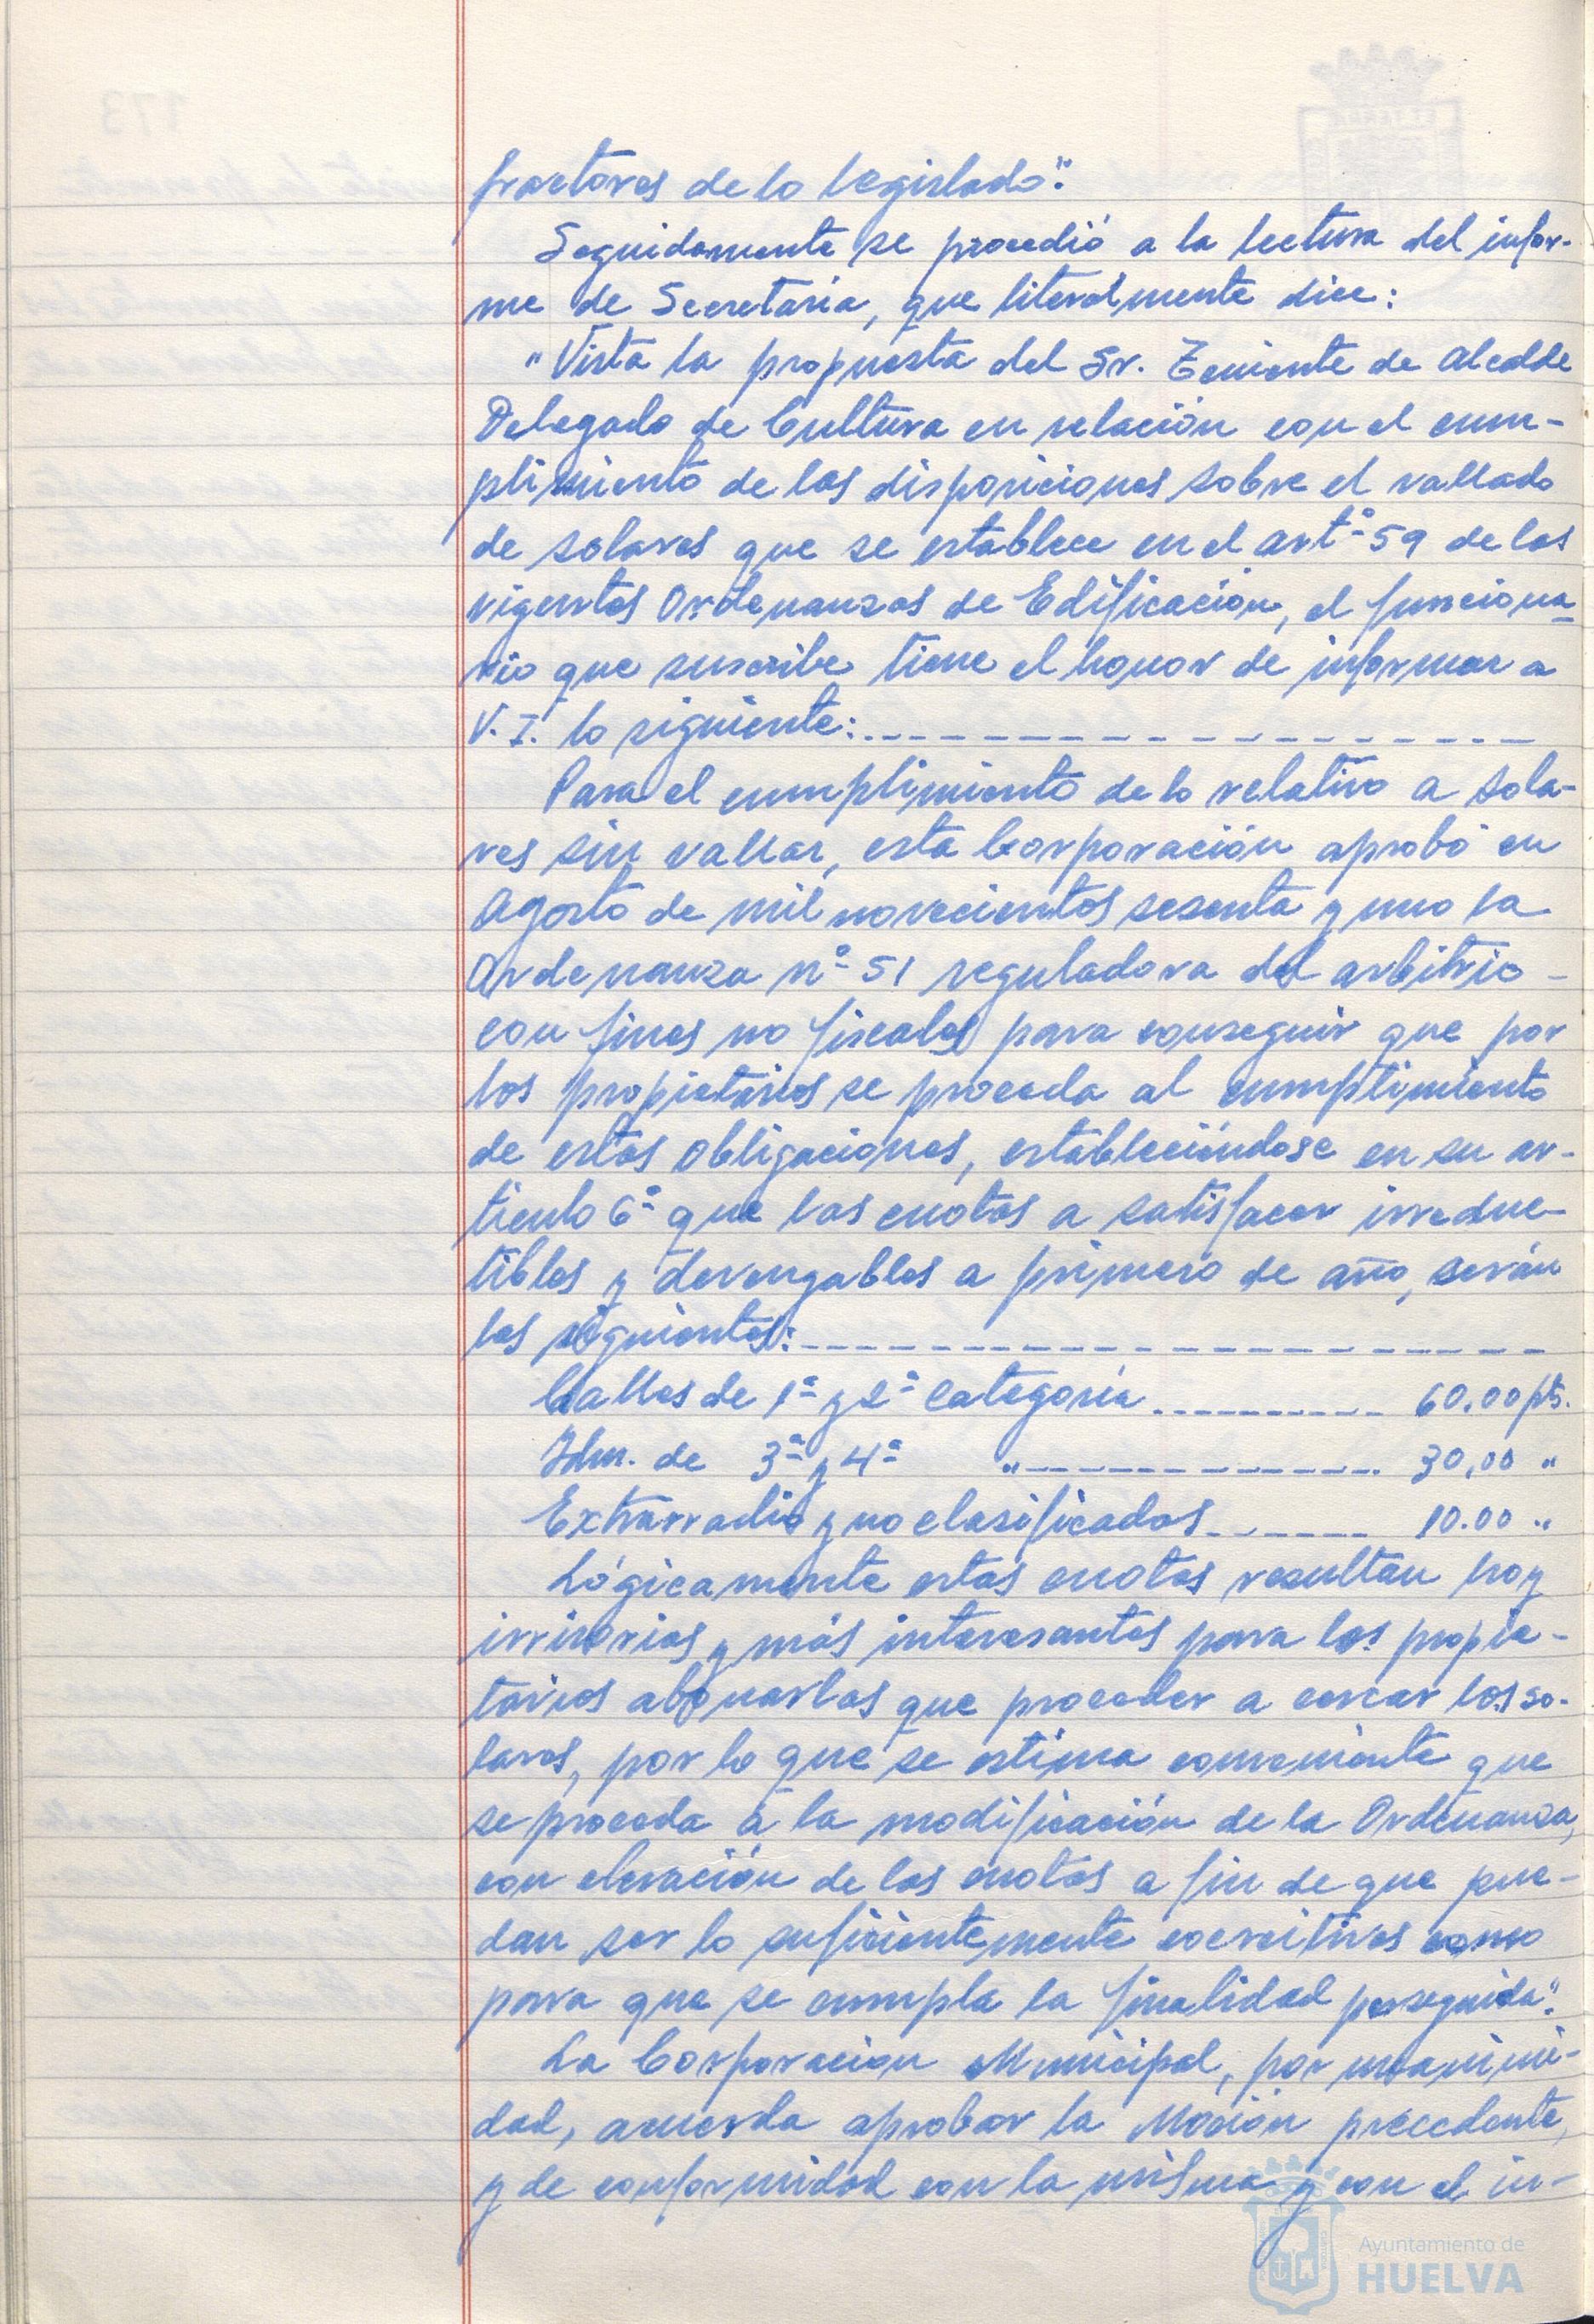 fractores de lo legislado".
Seguidamente se procedió a la lectura del infor-
me de Secretaría, que literalmente dice:
"Vista la propuesta del Sr. Teniente de Alcalde
Delegado de Cultura en relación con el cum-
plimiento de las disposiciones sobre el vallado
de solares que se establece en el artº 59 de las
vigentes Ordenanzas de Edificación, el funciona-
rio que suscribe tiene el honor de informar a
V.I. lo siguiente:
Para el cumplimiento de lo relativo a sola-
res sin vallar, esta Corporación aprobó en
Agosto de mil novecientos sesenta y uno la
Ordenanza nº 51 reguladora del arbitrio
con fines no fiscales para conseguir que por
los propietarios se proceda al cumplimiento
de estas obligaciones, estableciéndose en su ar-
tículo 6º que las cuotas a satisfacer irreduc-
tibles y devengables a primero de año, serán
las siguientes:
Calles de 1ª y 2ª categoría 60.00 pts.
Idm. de 3ª y 4ª " 30,00 "
Extrarradio y no clasificadas 10.00 "
Lógicamente estas cuotas resultan hoy
irrisorias y más interesantes para los propie-
tarios abonarlas que proceder a cercar los so-
lares, por lo que se estima conveniente que
se proceda a la modificación de la Ordenanza,
con elevación de las cuotas a fin de que pue-
dan ser lo suficientemente coercitivas como
para que se cumpla la finalidad perseguida".
La Corporación Municipal, por unanimi-
dad, acuerda aprobar la Moción precedente,
y de conformidad con la misma y con el in-
Ayuntamiento de
HUELVA